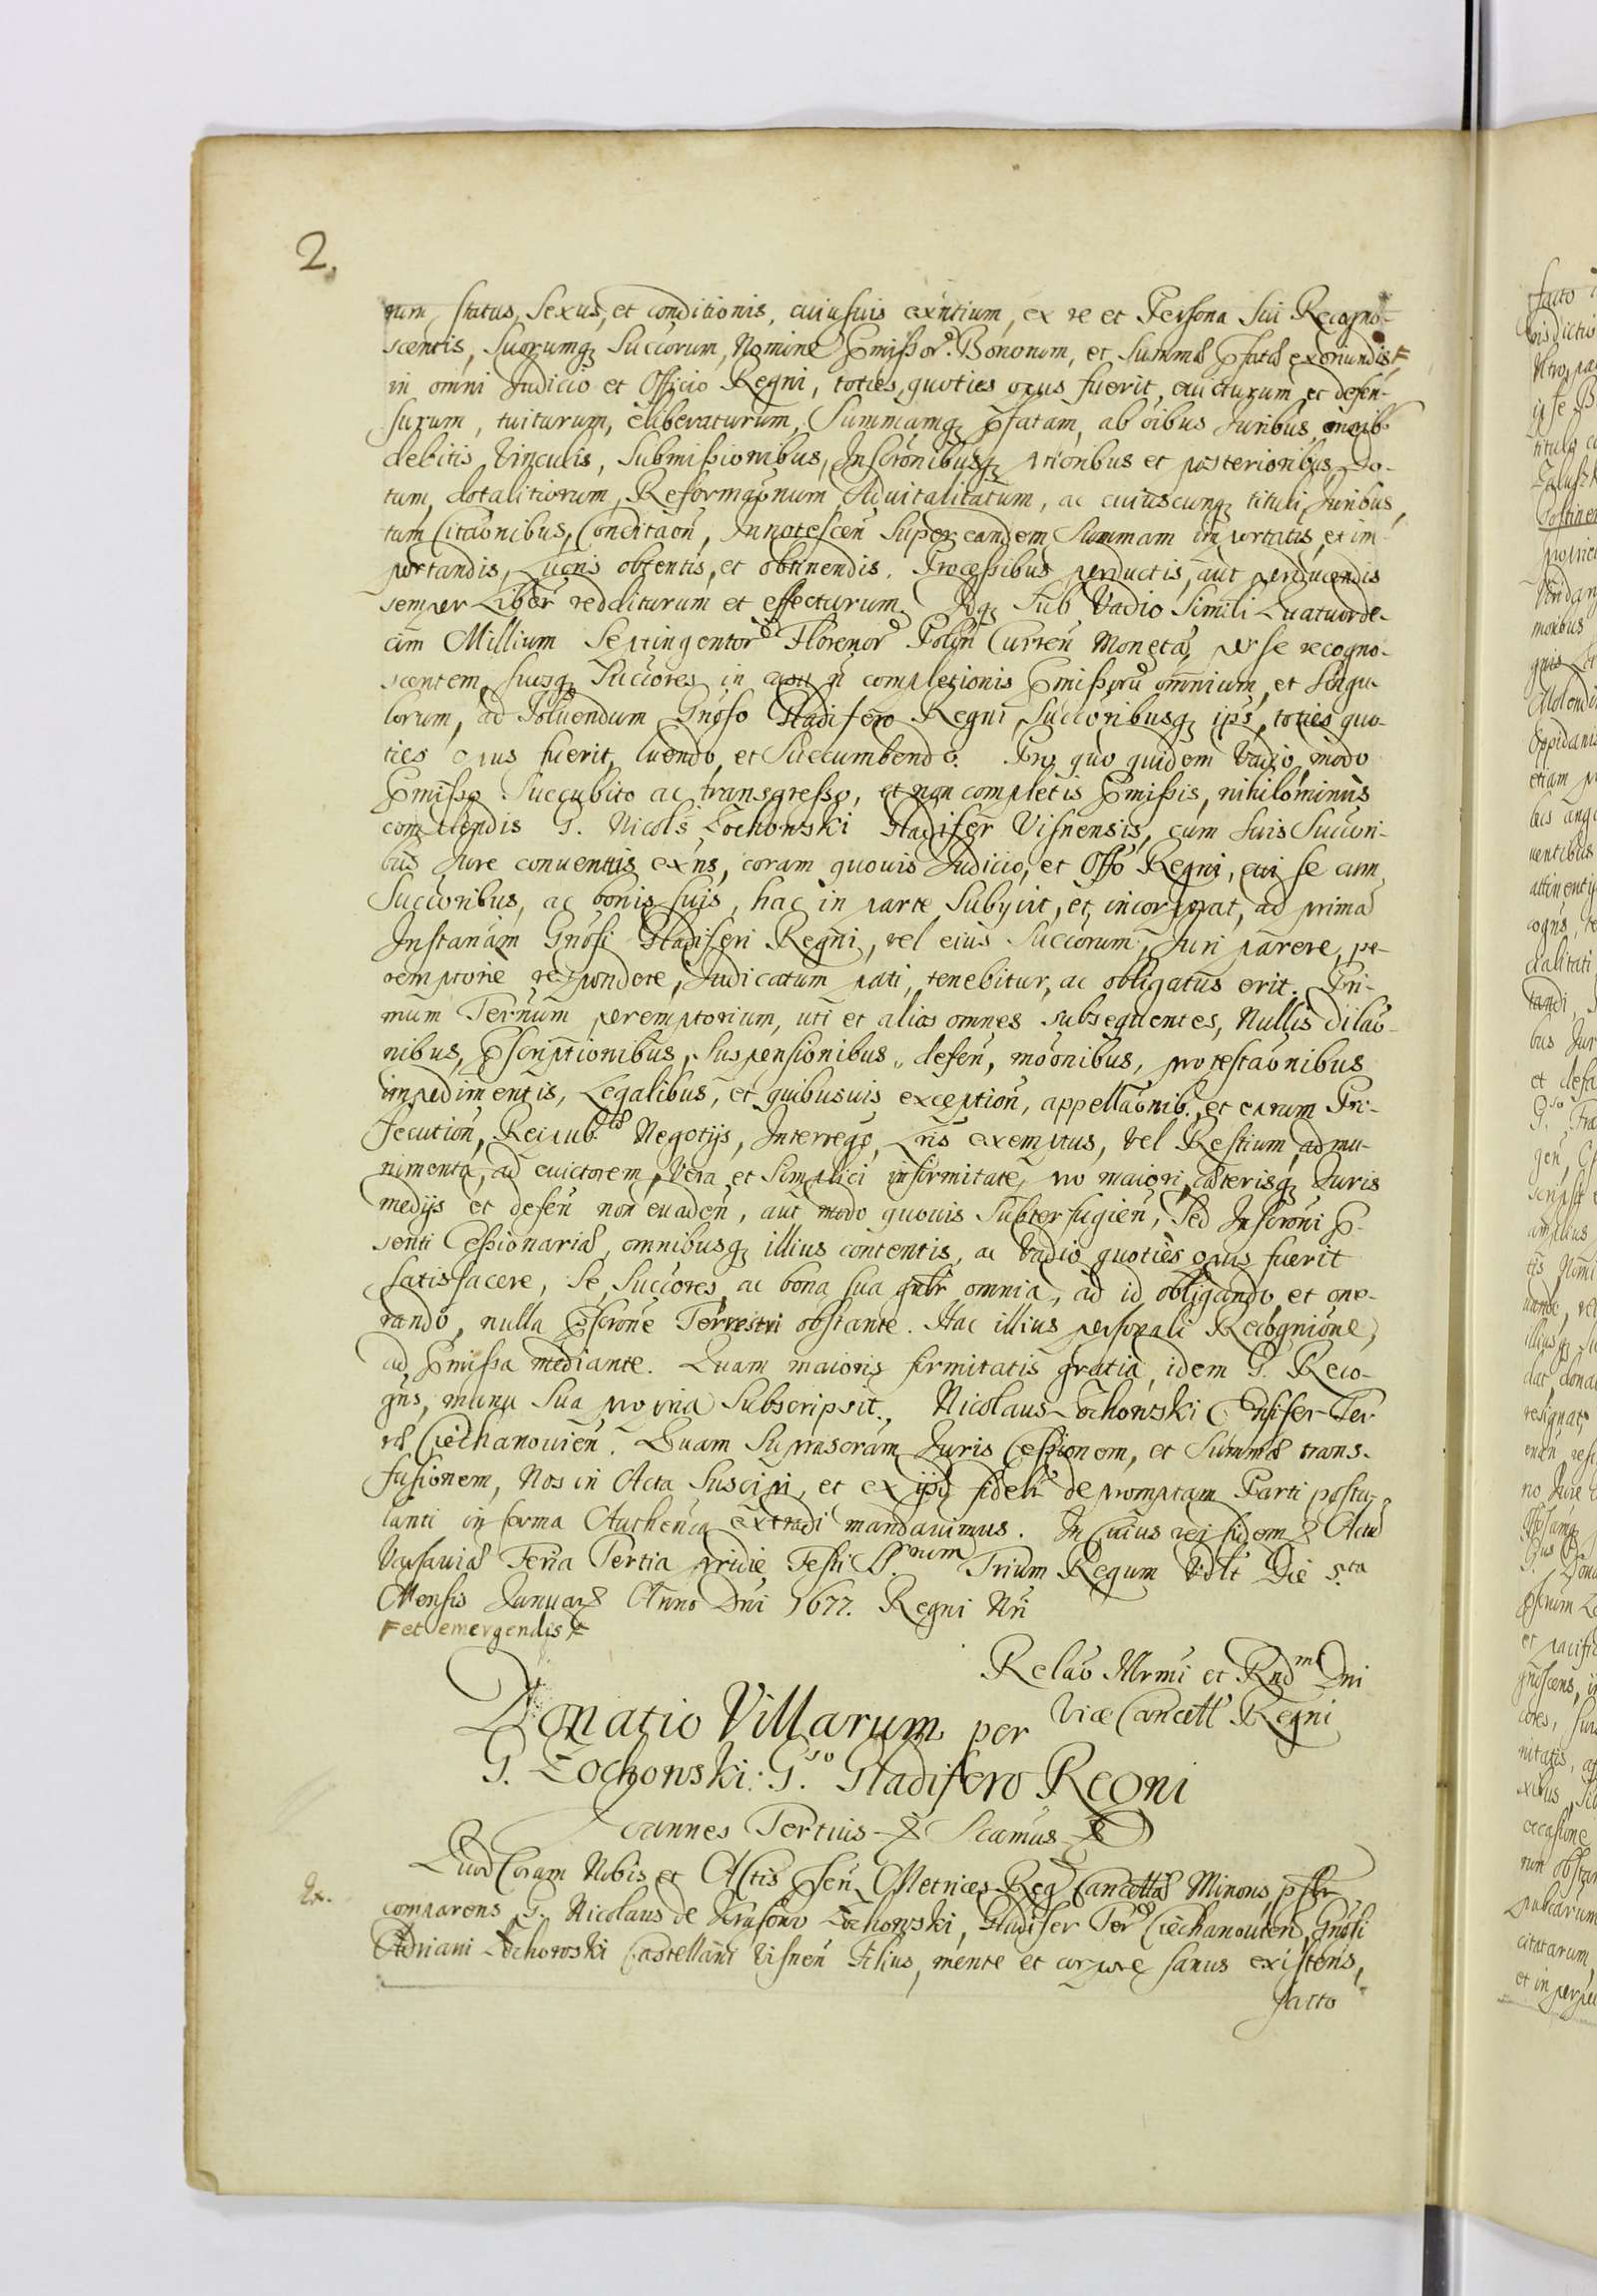 2.
rum, status, sexus, et conditionis, cuiusuis exntium, ex re et Persona sui Recogno-
scentis, suorumq; succorum, Nomine Pmissor. Bonorum, et summæ pfatæ exoriundis F
in omni Judicio et Officio Regni, toties, quoties opus fuerit, euicturum, et defen-
surum, tuiturum, eliberaturum, Summamq; pfatam, ab oibus Juribus, oneribs
debitis Vinculis, submissionibus, Inscronibusq; prioribus et posterioribus, Do-
tum, dotalitiorum, Reformaonum, Aduitalitatum, ac cuiuscunq; tituli Juribus,
tum Citaonibus, Condictaon, Innotescen super eandem Summam importatis, et im-
portandis, Lucris obtentis, et obtinendis. Processibus perductis, aut perducendis
semper Liber redditurum et effecturum. Idq; sub Vadio simili Quatuorde-
cim Millium Septingentor Florenor Polin Curren Monetæ, per se recogno-
scentem, suosq; Succores in casu n completionis Pmissoru omnium, et singu-
lorum, ad soluendum Gnoso Gladifero Regni, Succoribusq; ips, toties quo-
ties opus fuerit, luendo, et succumbendo. Pro quo quidem Vadio, modo
Pmisso succubito ac transgresso, et non completis Pmissis, nihilominus
complendis G. Nicols Łochowski Gladifer Visnensis, cum suis Succori-
bus Jure conuentus exns, coram quouis Judicio, et Offo Regni, cui se cum
Succoribus, ac bonis suis, hac in parte subijcit, et incorporat, ad primā
Instanam Gnosi Gladiferi Regni, vel eius Succorum, Juri parere, pe-
remptorie respondere, Judicatum pati, tenebitur, ac obligatus erit. Pri-
mum Ternum peremptorium, uti et alios omnes subsequentes, Nullis dilao-
nibus, Pscriptionibus, suspensionibus, defen, moonibus, protestaonibus
impedimentis, Legalibus, et quibusuis exception, appellaonib., et earum Pro-
secution, Reipub. Negotijs, Interregō, Lris exemptus, vel Restium, ad mu-
nimenta, ad euictorem, Vera et simplici infirmitate, pro maiori, cæterisq; Juris
medijs et defen non euaden, aut modo quouis subterfugien, sed Inscroni P-
senti Cessionariæ, omnibusq; illius contentis, ac Vadio, quoties opus fuerit
satisfacere, se, succores, ac bona sua gnlr omnia, ad id obligando, et one-
rando, nulla Pscrone Terrestri obstante. Hac illius personali Recognione,
ad Pmissa mediante. Quam maioris firmitatis gratia, idem G. Reco-
gns, manu sua propria subscripsit. Nicolaus Łochowski Ensifer Ter
ræ Ciechanouien. Quam suprascram Juris Cessionem, et summæ trans-
fusionem, Nos in Acta suscipi, et ex ijsd fideli de promptam Parti postu-
lanti in forma Authenca extradi mandauimus. In Cuius rei fidem & Actū
Varsauiæ Feria Tertia pridie Festi S.rum Trium Regum Vdlt Die 5.ta
Mensis Januarij Anno Dni 1677. Regni Nri
F et emergendis F
Relao Illrmi et Rndmi Dni
Vice Cancell Regni
Donatio Villarum per
G. Łochowski: G.so Gladifero Regni
Joannes Tertius & Scamus &
Ex.
Quod Coram Nobis et Actis Psen Metrices Reg Cancellæ Minoris, psstr
comparens G. Nicolaus de Łochowski, Gladifer Ter Ciechanouien, Gnosi
Adriani Łochowski Castellani Visnen Filius, mente et corpore sanus existens,
facto